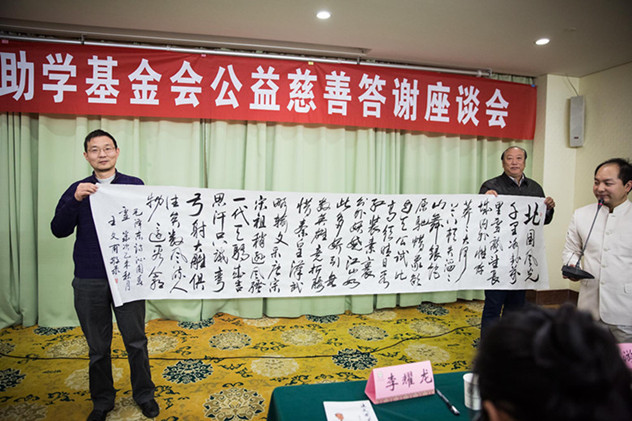 助学基金会公益慈善答谢座谈会
北国风光
千里冰封萬
里雪飘望長
城内外惟餘
莽莽大河
上下頓失滔滔
山舞銀蛇
原馳蜡象欲
与天公试比
高须晴日看
红装素裹
分外妖娆江山如
此多娇引無
數英雄竞折腰
惜秦皇漢武
略輸文采唐宗
宋祖稍逊风骚
一代天骄成吉
思汗只识弯
弓射大雕俱
往矣數風流人
物還看今朝
毛泽东词沁园春
雪
李耀龙